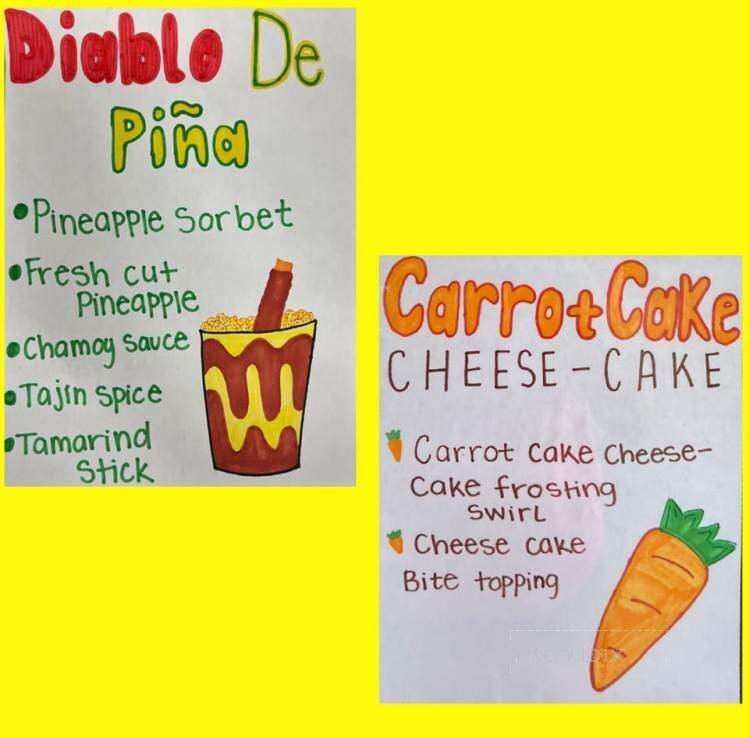 Diablo De
Piña
Pineapple Sorbet
Fresh cut
Pineapple
Chamoy sauce
Tajin spice
Tamarind
Stick
Carrot Cake
CHEESE-CAKE
Carrot cake cheese-
cake frosting
swirl
Cheese cake
Bite topping